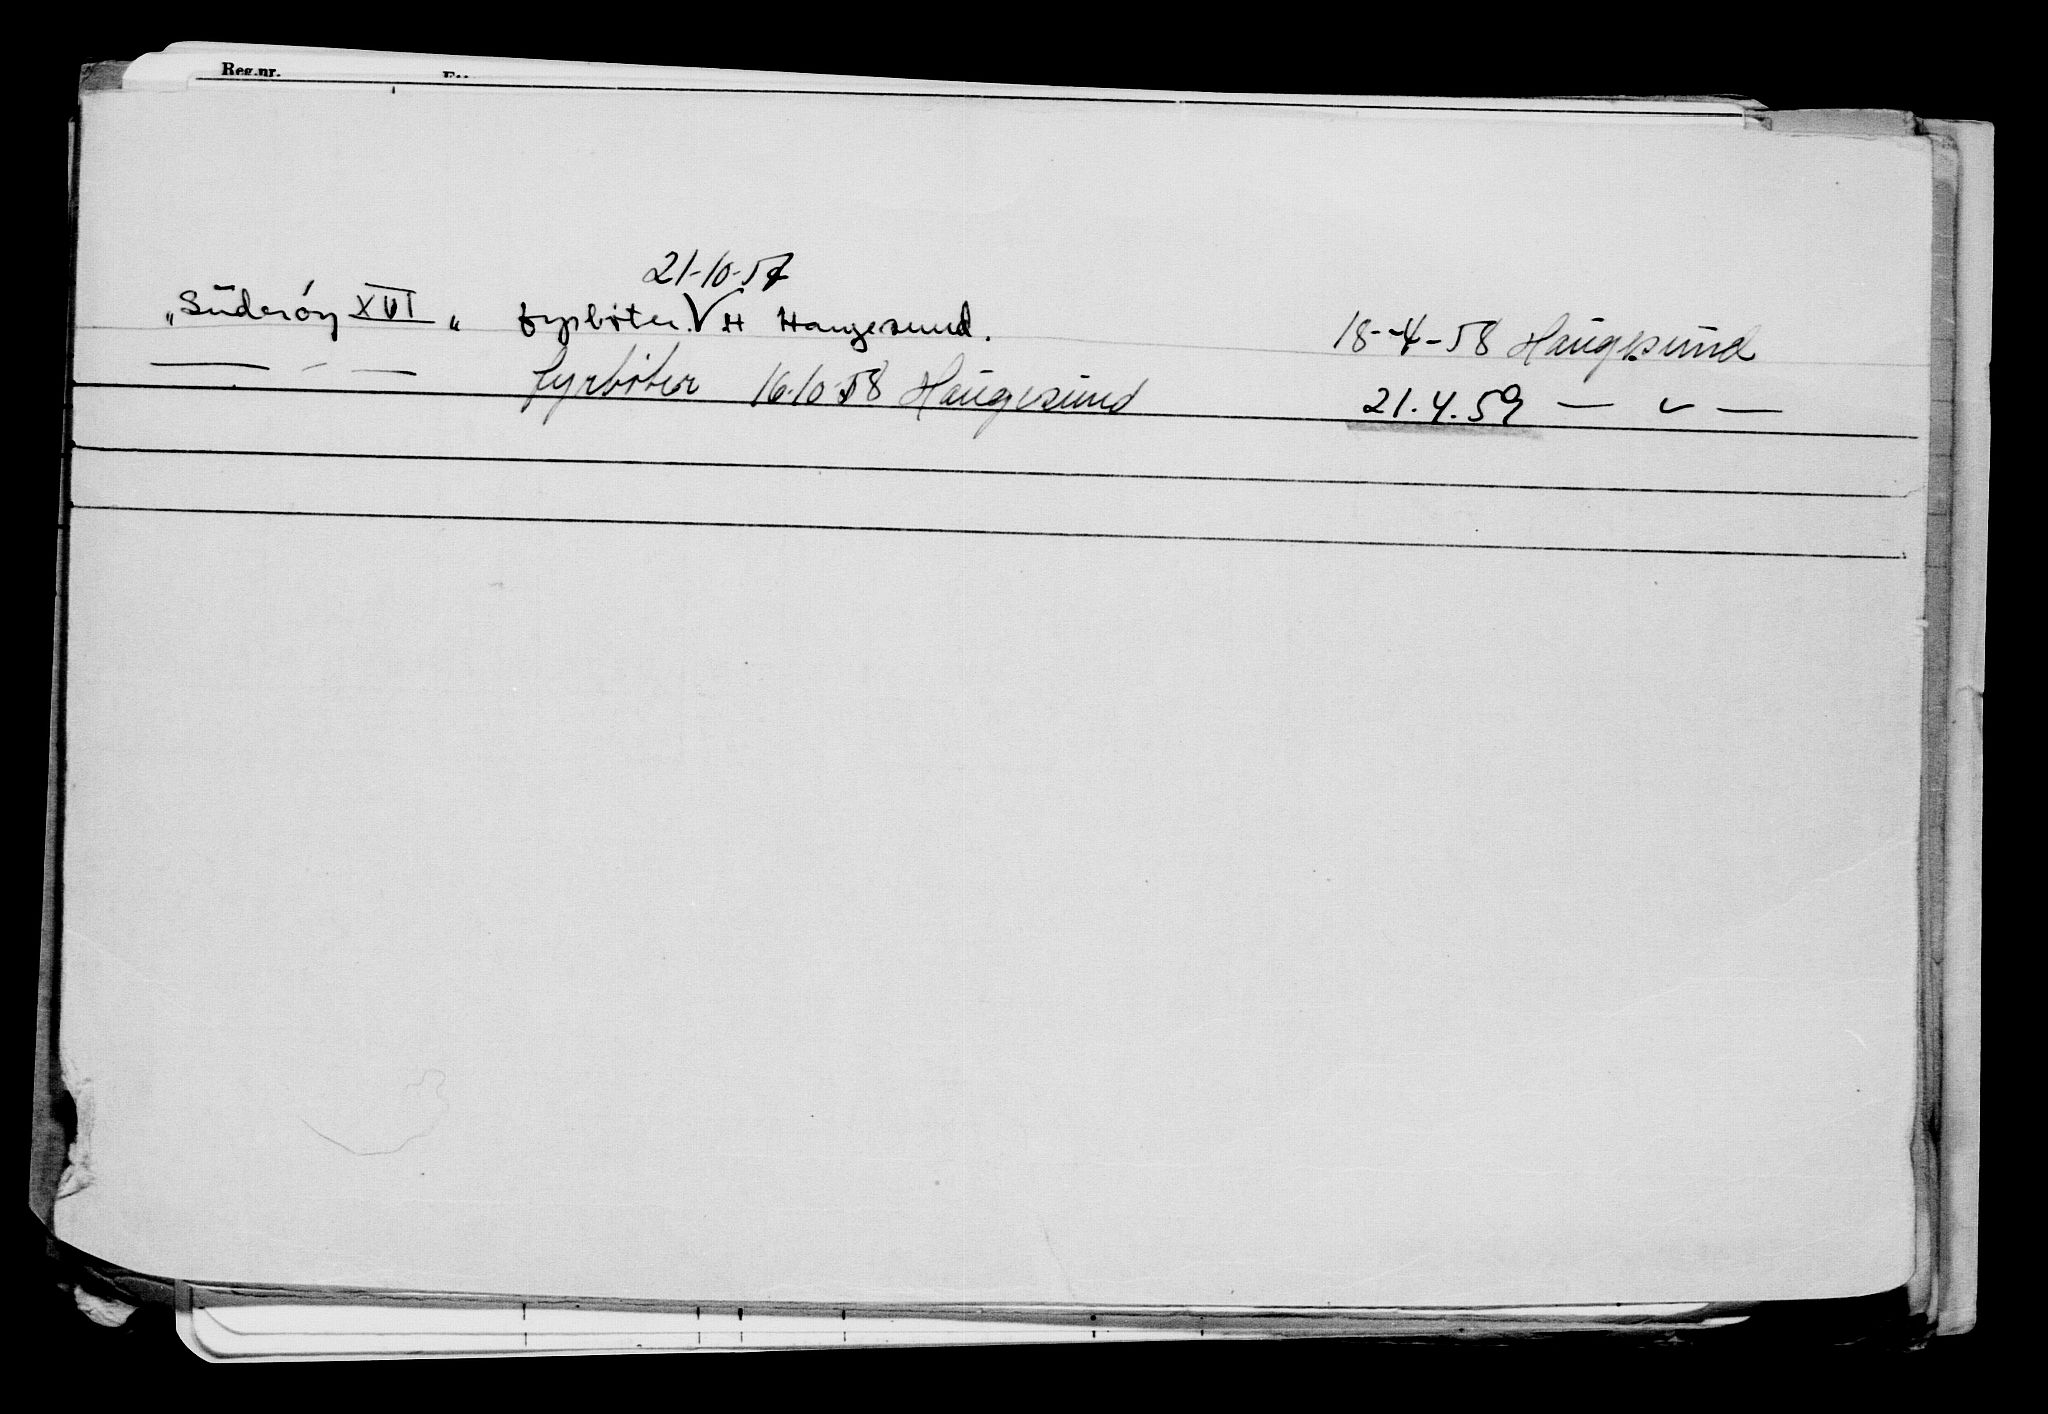 Reg.nr.
21-10-57
„Süderöy XVI" fyrbøter. √ H Haugesund. 18-4-58 Haugesund
— - — fyrbøter 16.10.58 Haugesund 21.4.59 — " —